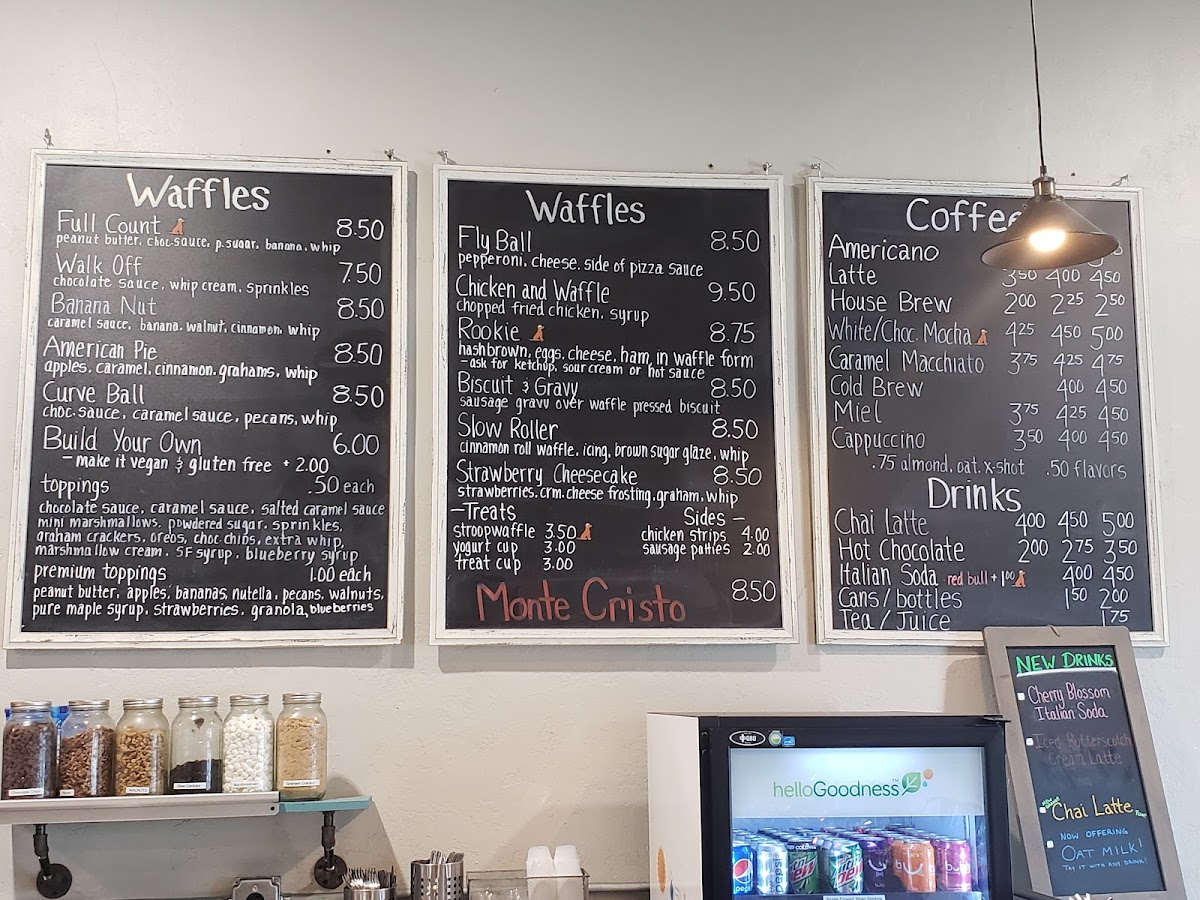 Waffles
Full Count 8.50
peanut butter, choc.sauce, p.sugar, banana, whip
Walk Off 7.50
chocolate sauce, whip cream, sprinkles
Banana Nut 8.50
caramel sauce, banana, walnut, cinnamon, whip
American Pie 8.50
apples, caramel, cinnamon, grahams, whip
Curve Ball 8.50
choc.sauce, caramel sauce, pecans, whip
Build Your Own 6.00
- make it vegan & gluten free + 2.00
toppings .50 each
chocolate sauce, caramel sauce, salted caramel sauce
mini marshmallows, powdered sugar, sprinkles,
graham crackers, oreos, choc chips, extra whip,
marshmallow cream, SF syrup, blueberry syrup
premium toppings 1.00 each
peanut butter, apples, bananas, nutella, pecans, walnuts,
pure maple syrup, strawberries, granola, blueberries
Waffles
Fly Ball 8.50
pepperoni, cheese, side of pizza sauce
Chicken and Waffle 9.50
chopped fried chicken, syrup
Rookie 8.75
hashbrown, eggs, cheese, ham, in waffle form
- ask for ketchup, sour cream or hot sauce
Biscuit & Gravy 8.50
sausage gravy over waffle pressed biscuit
Slow Roller 8.50
cinnamon roll waffle, icing, brown sugar glaze, whip
Strawberry Cheesecake 8.50
strawberries, crm.cheese frosting, graham, whip
-Treats
stroopwaffle 3.50
yogurt cup 3.00
treat cup 3.00
Sides -
chicken strips 4.00
sausage patties 2.00
Monte Cristo 8.50
Coffee
Americano
Latte 3.50 4.00 4.50
House Brew 2.00 2.25 2.50
White/Choc. Mocha 4.25 4.50 5.00
Caramel Macchiato 3.75 4.25 4.75
Cold Brew 4.00 4.50
Miel 3.75 4.25 4.50
Cappuccino 3.50 4.00 4.50
.75 almond, oat, x-shot .50 flavors
Drinks
Chai Latte 4.00 4.50 5.00
Hot Chocolate 2.00 2.75 3.50
Italian Soda red bull + 1.00 4.00 4.50
Cans/bottles 1.50 2.00
Tea / Juice 1.75
NEW DRINKS
Cherry Blossom
Italian Soda
Iced Butterscotch
Cream Latte
Chai Latte
NOW OFFERING
OAT MILK!
TRY IT WITH ANY DRINK!
helloGoodness™
pepsi
bubly